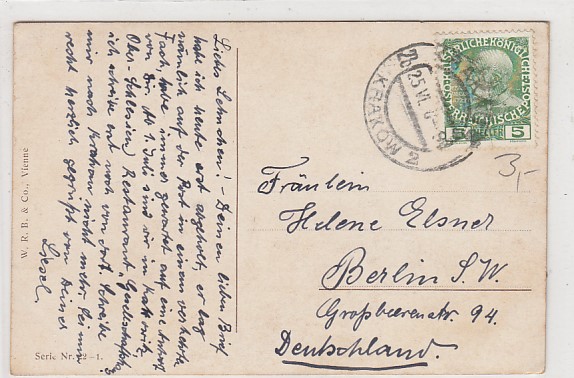 Liebs Lehnchen! - Deinen lieben Brief
habe ich heute erst abgeholt, er lag
nämlich auf der Post in einem verkehrten
Fach, habe immer gewartet auf eine Antwort
von Dir. Ab 1. Juli sind wir in Kattowitz,
Ober Schlesien, Restaurant "Gesellschafts
ich schreibe erst noch von dort. Schreibe
mir nach Krakau nicht mehr. Sei nun
recht herzlich gegrüßt von Deiner
Liesel.
W. R. B. & Co., Vienne
Serie Nr. 22-1.
KAISERLICHE KÖNIGLICHE POST
ÖSTERREICHISCHE
5 HELLER 5
KRAKÓW 2
25 VI
3,-
Fräulein
Helene Elsner
Berlin S.W.
Großbeerenstr. 94.
Deutschland.